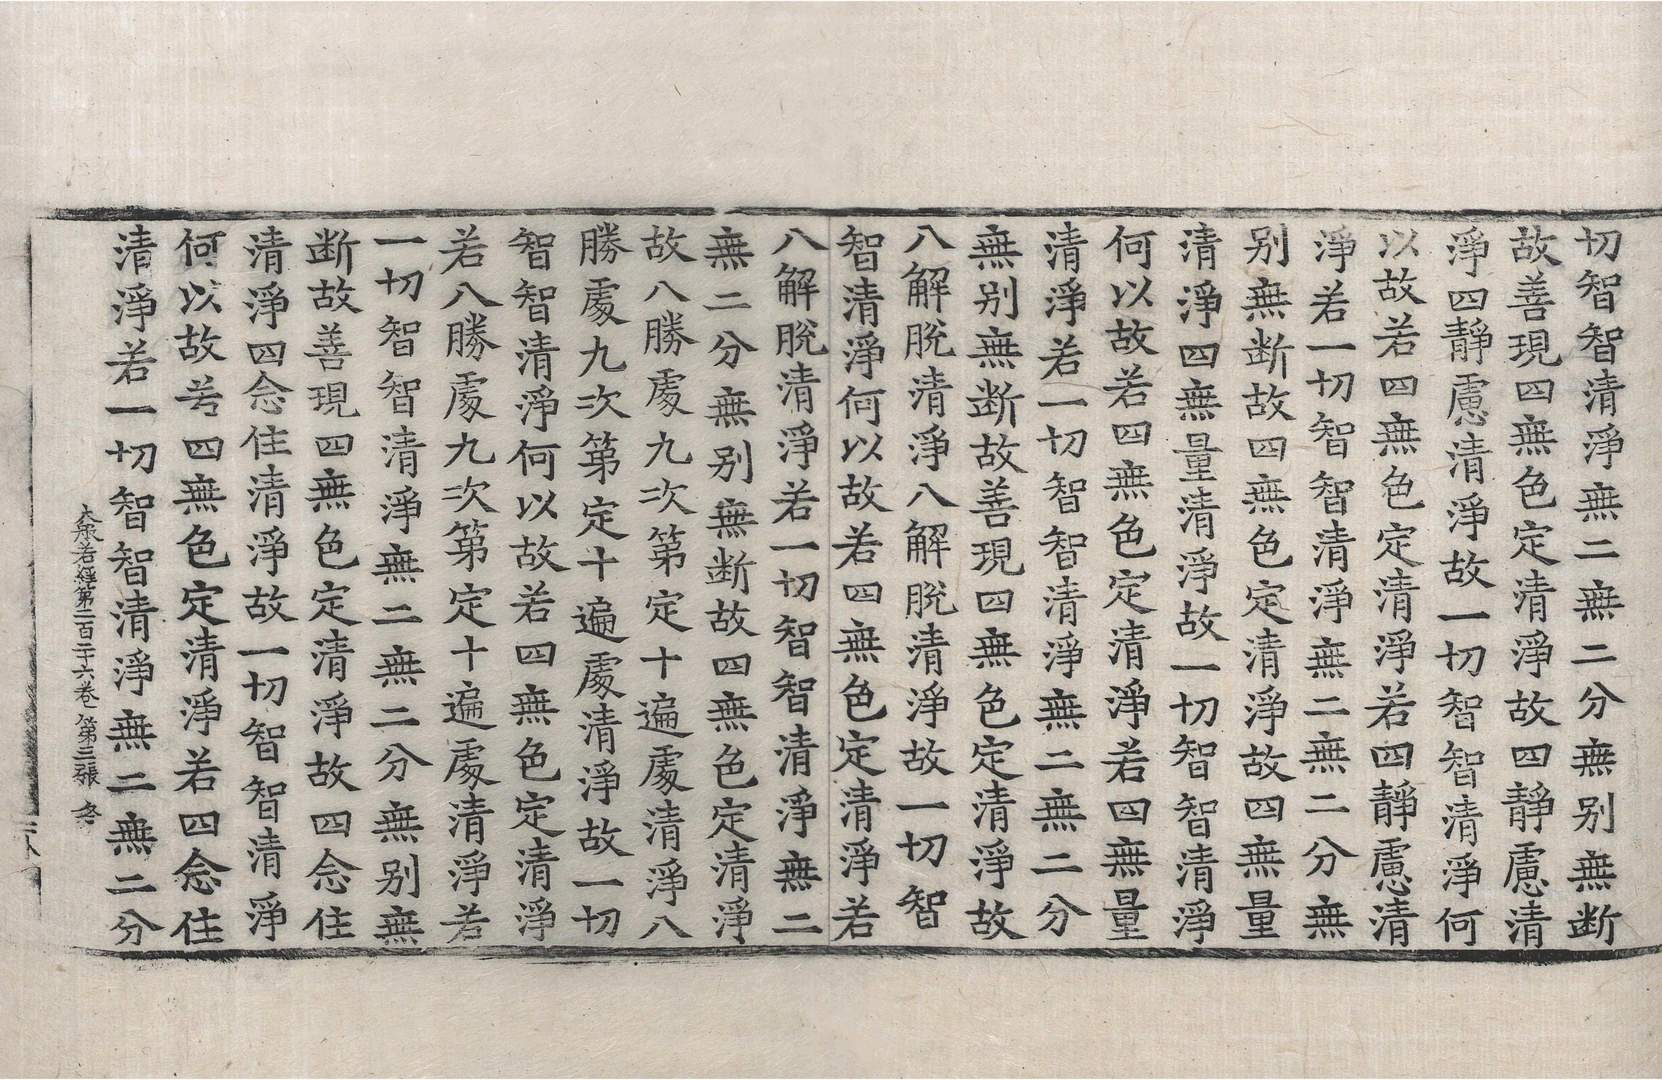 切智智清淨無二無二分無别無断
故善現四無色定清淨故四靜慮清
淨四靜慮清淨故一切智智清淨何
以故若四無色定清淨若四靜慮清
淨若一切智智清淨無二無二分無
别無断故四無色定清淨故四無量
清淨四無量清淨故一切智智清淨
何以故若四無色定清淨若四無量
清淨若一切智智清淨無二無二分
無别無断故善現四無色定清淨故
八解脫清淨八解脫清淨故一切智
智清淨何以故若四無色定清淨若
八解脫清淨若一切智智清淨無二
無二分無别無断故四無色定清淨
故八勝處九次第定十遍處清淨八
勝處九次第定十遍處清淨故一切
智智清淨何以故若四無色定清淨
若八勝處九次第定十遍處清淨若
一切智智清淨無二無二分無别無
断故善現四無色定清淨故四念住
清淨四念住清淨故一切智智清淨
何以故若四無色定清淨若四念住
清淨若一切智智清淨無二無二分
大般若經第二百二十六卷 第三張 冬